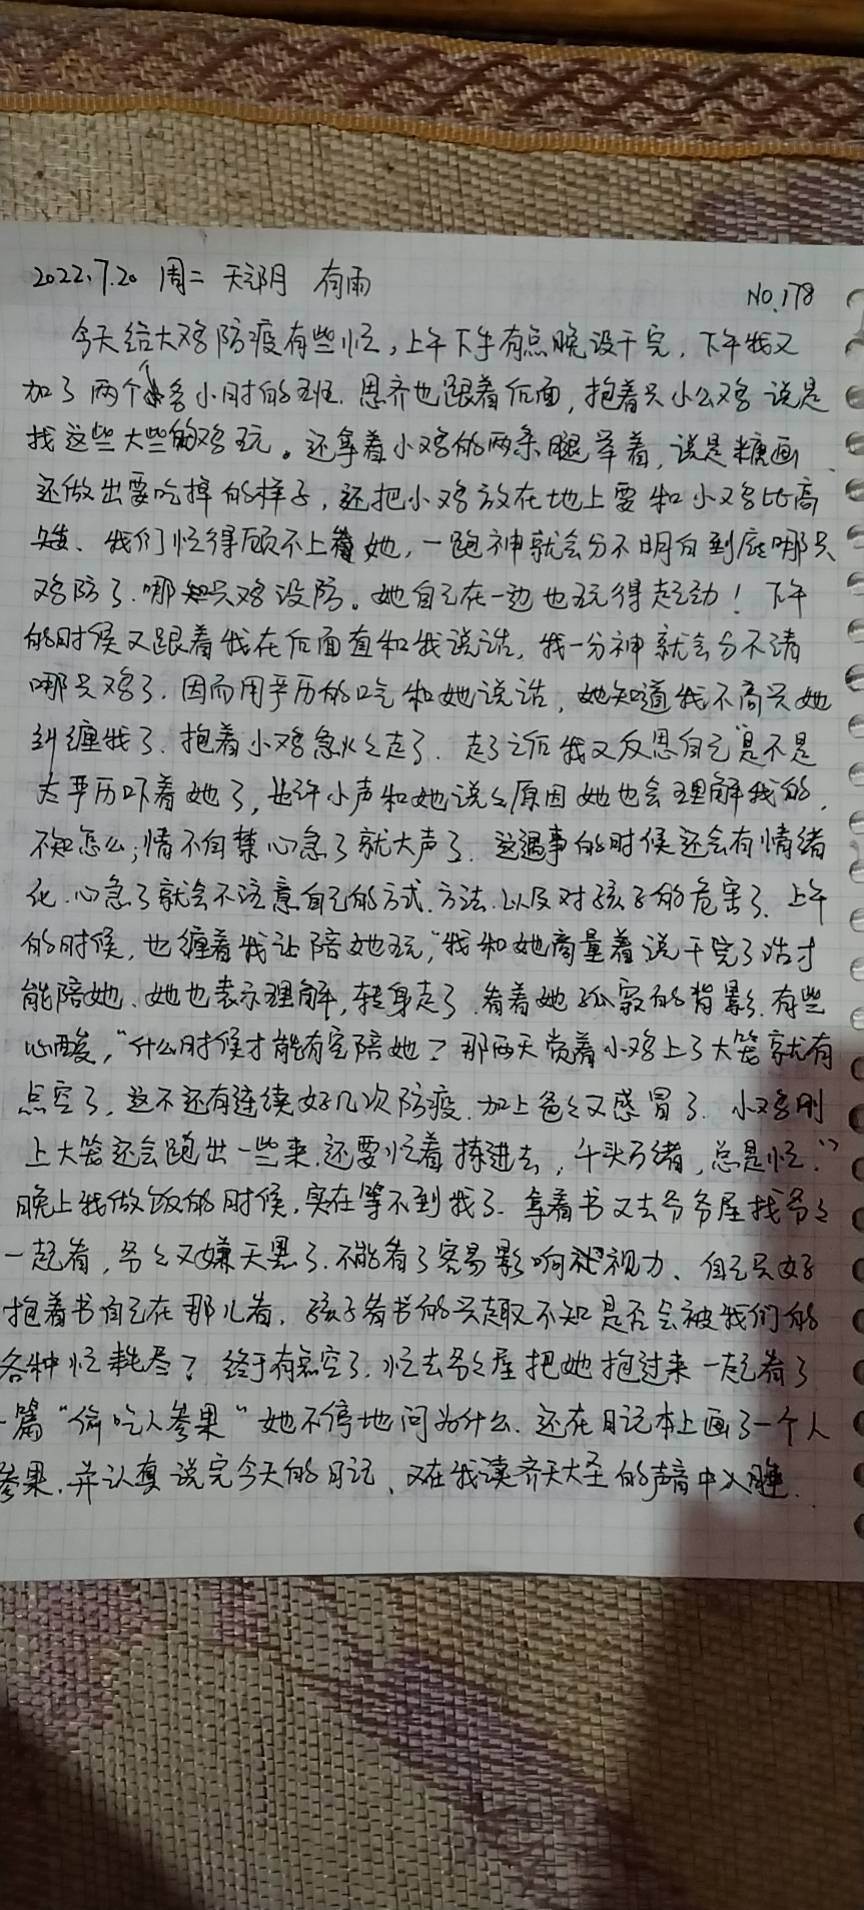 2022.7.20 周二 天阴 有雨
No.178
今天给大鸡防疫有些忙，上午下午有点晚没干完，下午我又
加了两个多小时的班. 思齐也跟着后面，抱着只小公鸡说是
找这些大些的鸡玩。还拿着小鸡的两条腿举着，说是糖画
还做出要吃掉的样子，还把小鸡放在地上要和小鸡比高
矮、我们忙得顾不上着她，一跑神就会分不明白到底哪只
鸡防了.哪只鸡没防。她自己在一边也玩得起劲！下午
的时候又跟着我在后面直和我说话，我一分神就会分不清
哪只鸡了. 因而用严历的吃和她说话，她知道我不高兴她
纠缠我了. 抱着小鸡急火火走了. 走了之后我又反思自己是不是
太严历吓着她了，也许小声和她说说原因她也会理解我的，
不知怎么；情不自禁心急了就大声了. 这遇事的时候还会有情绪
化.心急了就会不注意自己的方式.方法.以及对孩子的危害了. 上午
的时候，也缠着我让陪她玩，“我和她商量着说干完了活才
能陪她、她也表示理解，转身走了.看着她孤寂的背影.有些
心酸，“什么时候才能有空陪她？那两天觉着小鸡上了大笼就有
点空了，这不还有连续好几次防疫.加上爸爸又感冒了. 小鸡刚
上大笼还会跑出一些来.还要忙着捉进去，千头万绪，总是忙.”
晚上我做饭的时候，实在等不到我了. 拿着书又去爷爷屋找爷爷
一起看，爷爷又嫌天黑了.不能看了容易影响视力、自己只好
抱着书自己在那儿看. 孩子看书的兴趣不知是否会被我们的
各种忙耗尽？终于有点空了.忙去爷爷屋把她抱过来一起看了
一篇“偷吃人参果”她不停地问为什么.还在日记本上画了一个人
参果.并认真说完今天的日记、又在我读齐天大圣的声音中入睡.